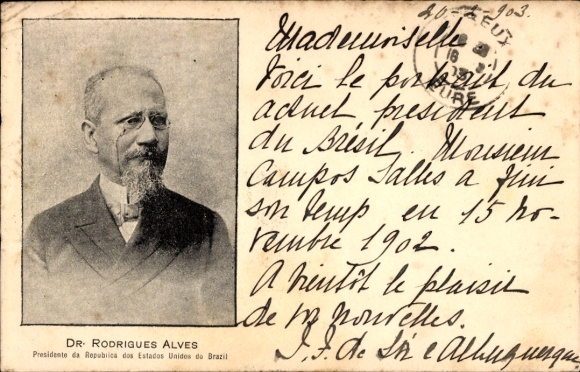 20-2-903.
Mademoiselle
Voici le portrait du
actuel president
du Brésil. Monsieur
Campos Salles a fini
son temp en 15 no-
vembre 1902.
A bientôt le plaisir
de vos nouvelles.
J. F. de Sá e Albuquerque
EURE
DR. RODRIGUES ALVES
Presidente da Republica dos Estados Unidos do Brazil